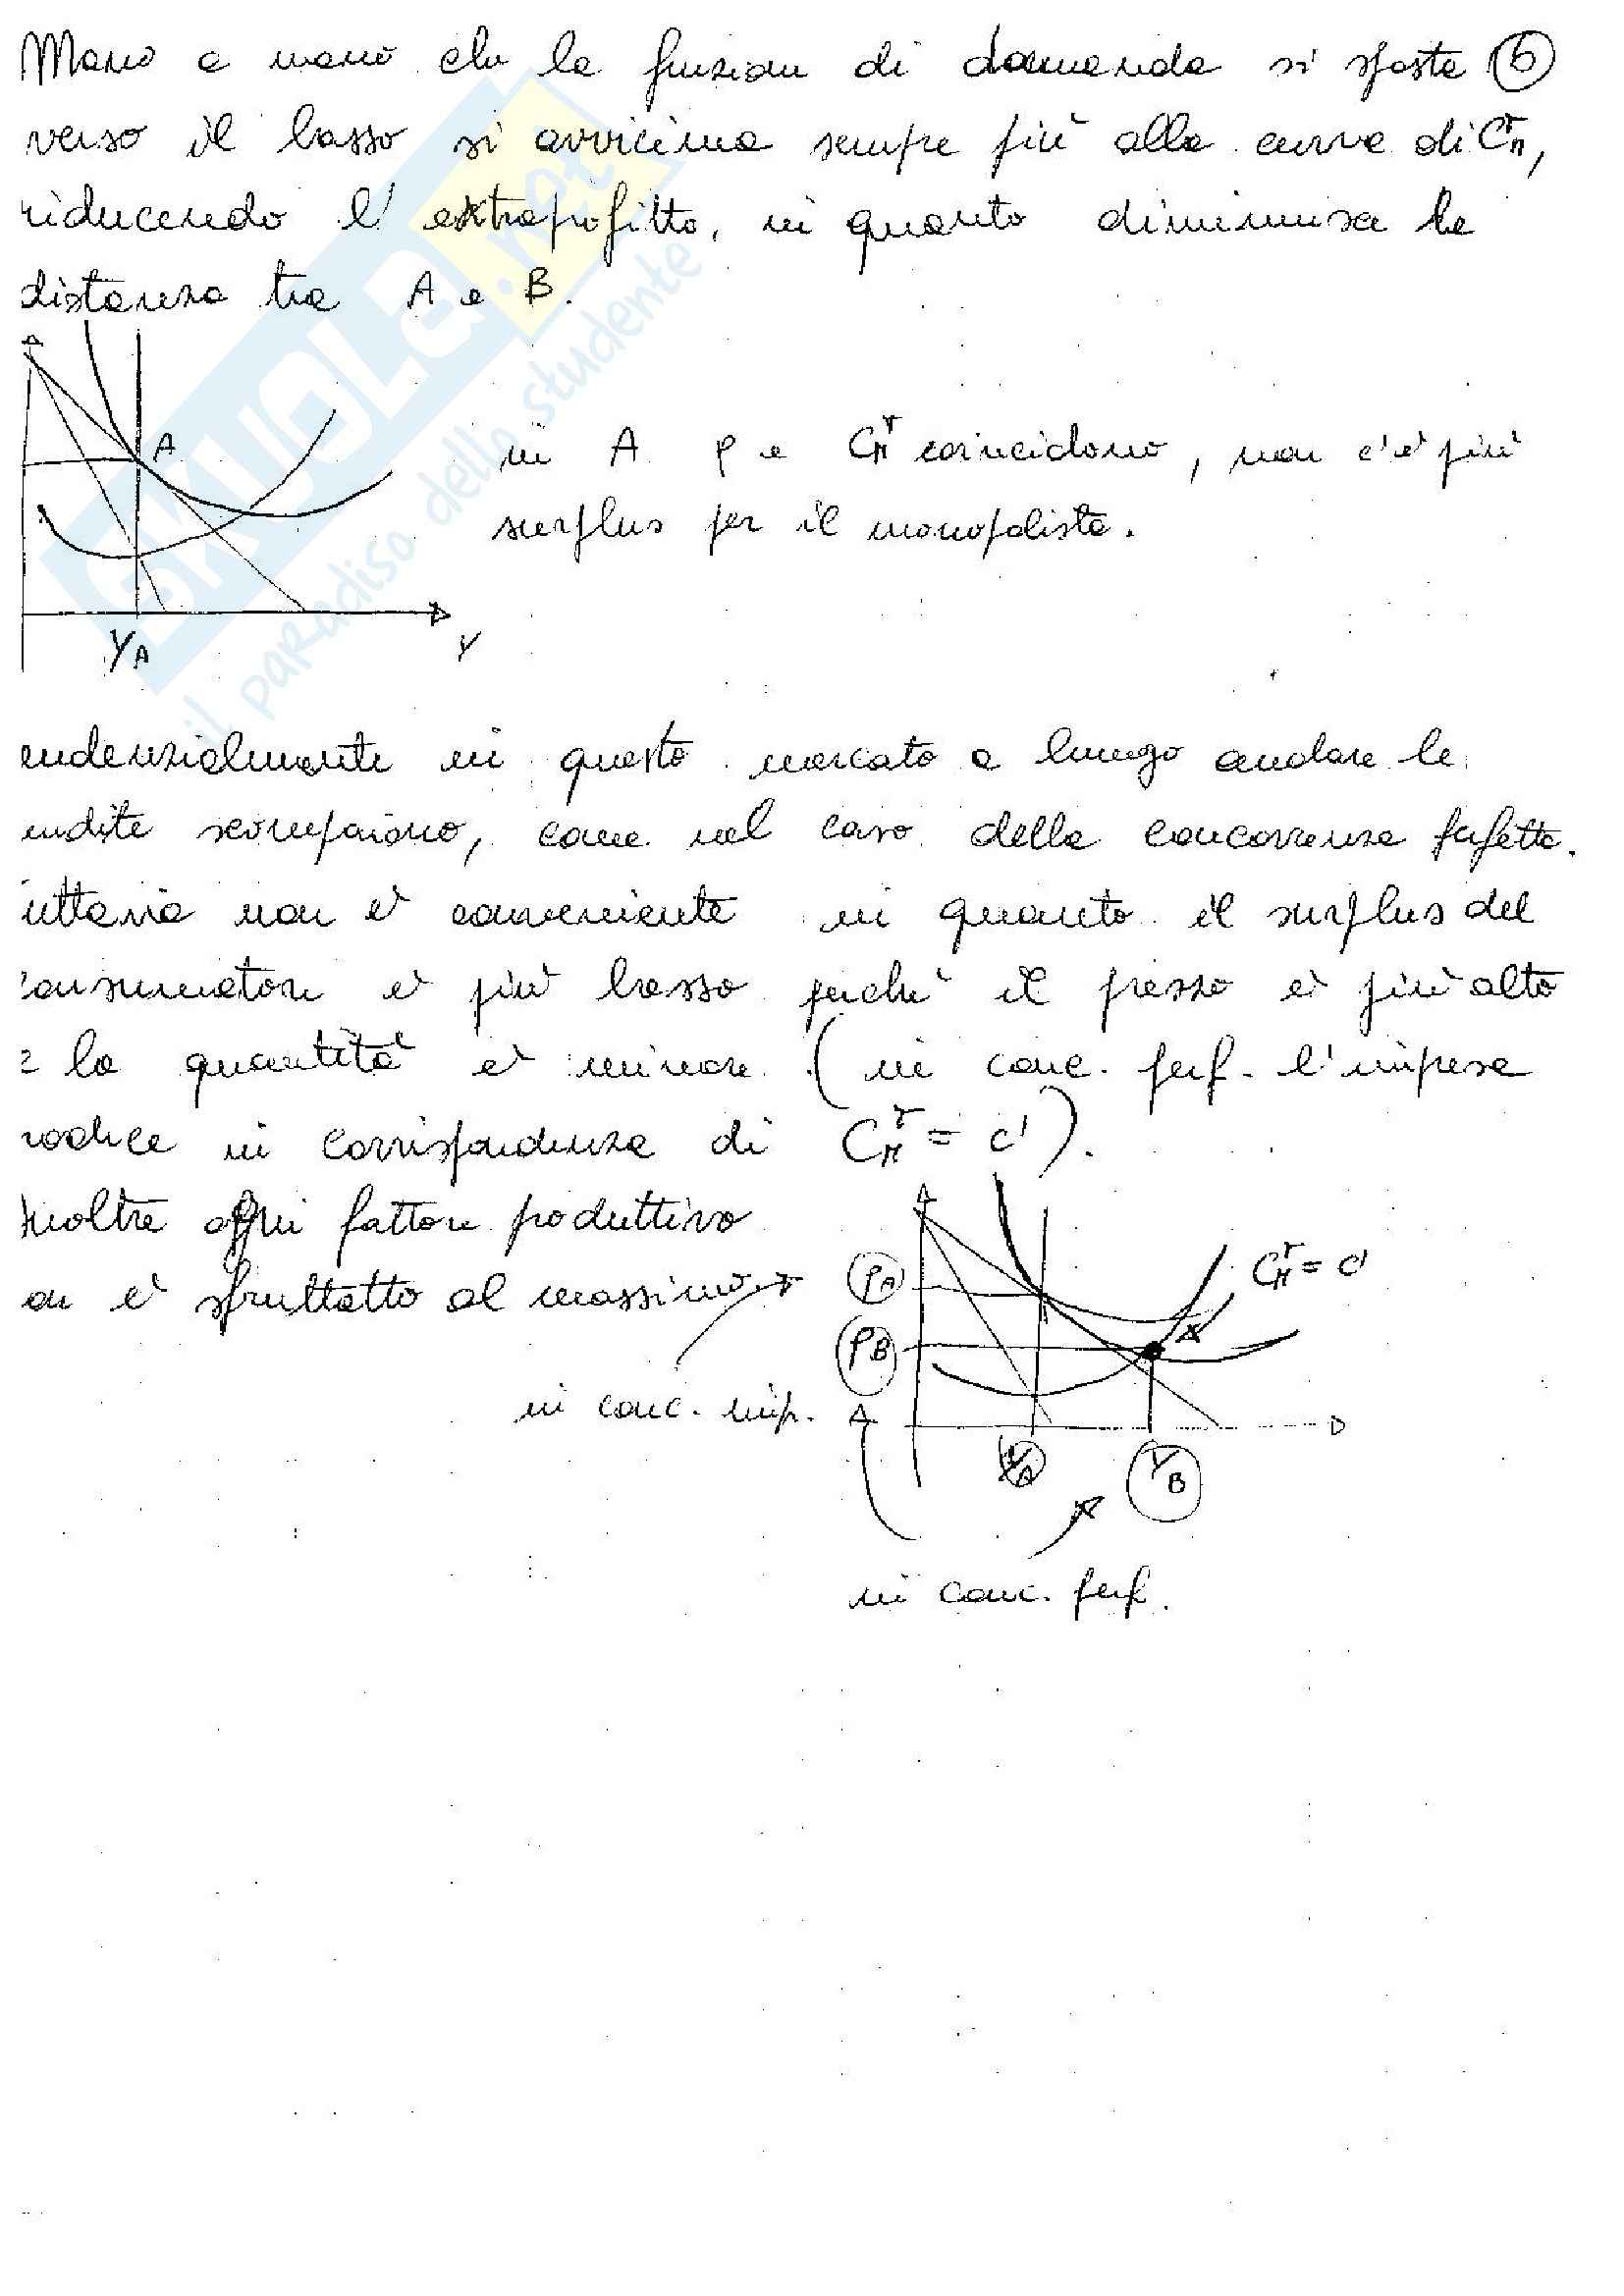 Mano a mano che la funzione di domanda si sposta 6
verso il basso si avvicina sempre più alla curva di CᵀM,
riducendo l'extraprofitto, in quanto diminuisce la
distanza tra A e B.
A
in A p e CᵀM coincidono, non c'è più
surplus per il monopolista.
YA
Y
endenzialmente in questo mercato a lungo andare le
endite scompaiono, come nel caso della concorrenza perfetta.
uttavia non è conveniente in quanto il surplus del
consumatore è più basso perché il prezzo è più alto
e la quantità è minore (in conc. perf. l'impresa
roduce in corrispondenza di CᵀM = c').
Inoltre ogni fattore produttivo
on è sfruttato al massimo
CᵀM = c'
pA
pB
in conc. imp.
YA
YB
in conc. perf.
SKUOLA.net
il paradiso dello studente